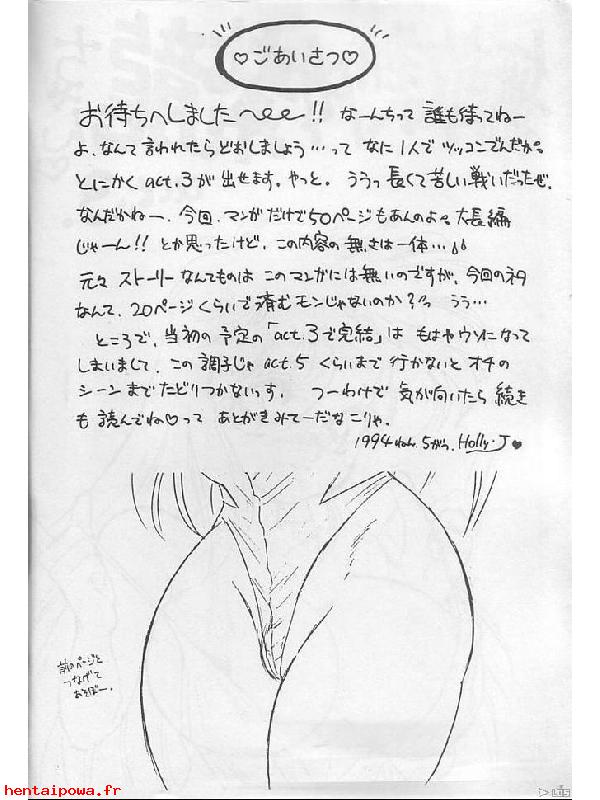 ♡ごあいさつ♡
お待ちへしました〜ee!! なーんちって 誰も待ってねー
よ、なんて言われたらどおしましょう…って なに1人でツッコンでんだか。
とにかく act.3が 出せます。やっと。 ううっ 長くて苦しい戦いだったぜ。
なんだかねー、今回、マンガだけで50ページもあんのよ。大長編
じゃーん!! とか思ったけど、この内容の無さは一体…
元々 ストーリーなんてものは このマンガには無いのですが、今回のネタ
なんて、20ページくらいで済むモンじゃないのか?っ うう…
ところで、当初の予定の「act.3で完結」は もはやウソになって
しまいまして、この調子じゃ act.5 くらいまで行かないと オチの
シーンまでたどりつかないっす。 つーわけで 気が向いたら 続き
も 読んでね♡って あとがきみてーだな こりゃ。
1994ねん.5がつ. Holly・J♥
前のページと
つなげて
あそぼー。
hentaipowa.fr